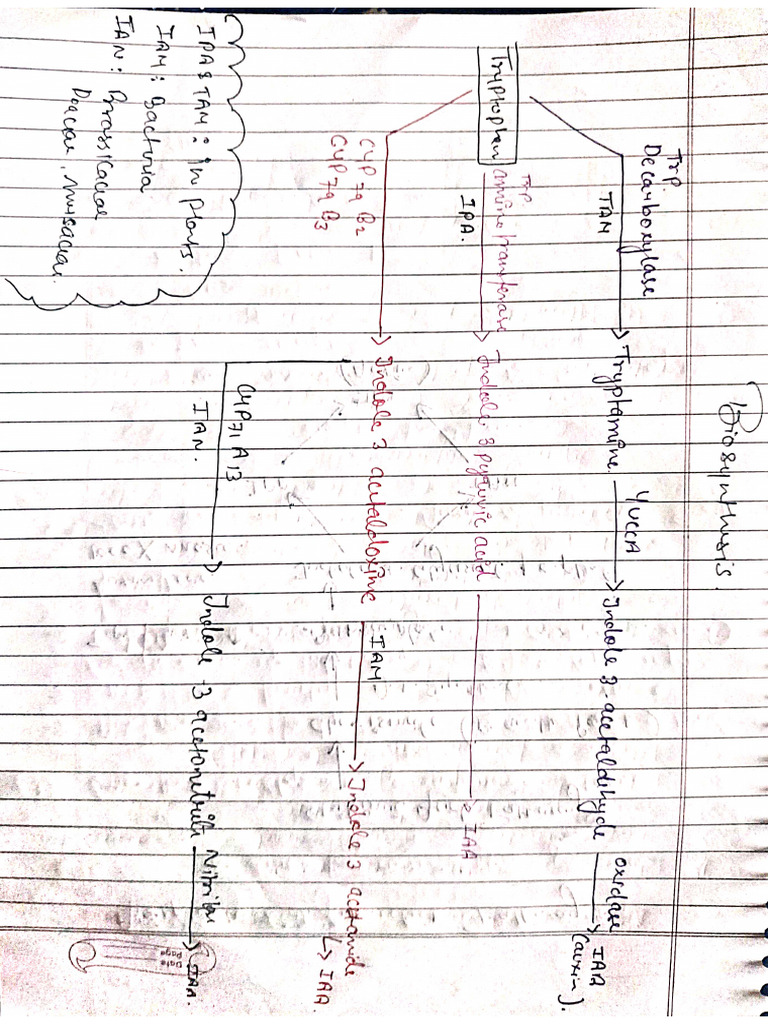 Biosynthesis.
Trp.
Decarboxylase
TAM
Tryptamine
YUCCA
Indole 3 acetaldihyde
oxidase
IAA
(auxin).
Tryptophan
Trp.
aminotransferase
IPA.
Indole 3 pyruvic acid
IAA
CYP 79 B2
CYP 79 B3
Indole 3 acetaldoxime
IAM
Indole 3 acetamide
IAA.
CYP71A13
IAN.
Indole -3 acetonitrile
IAA.
IPA & TAM : in plants.
IAM : Bacteria
IAN : Brassicaceae
Date
Page